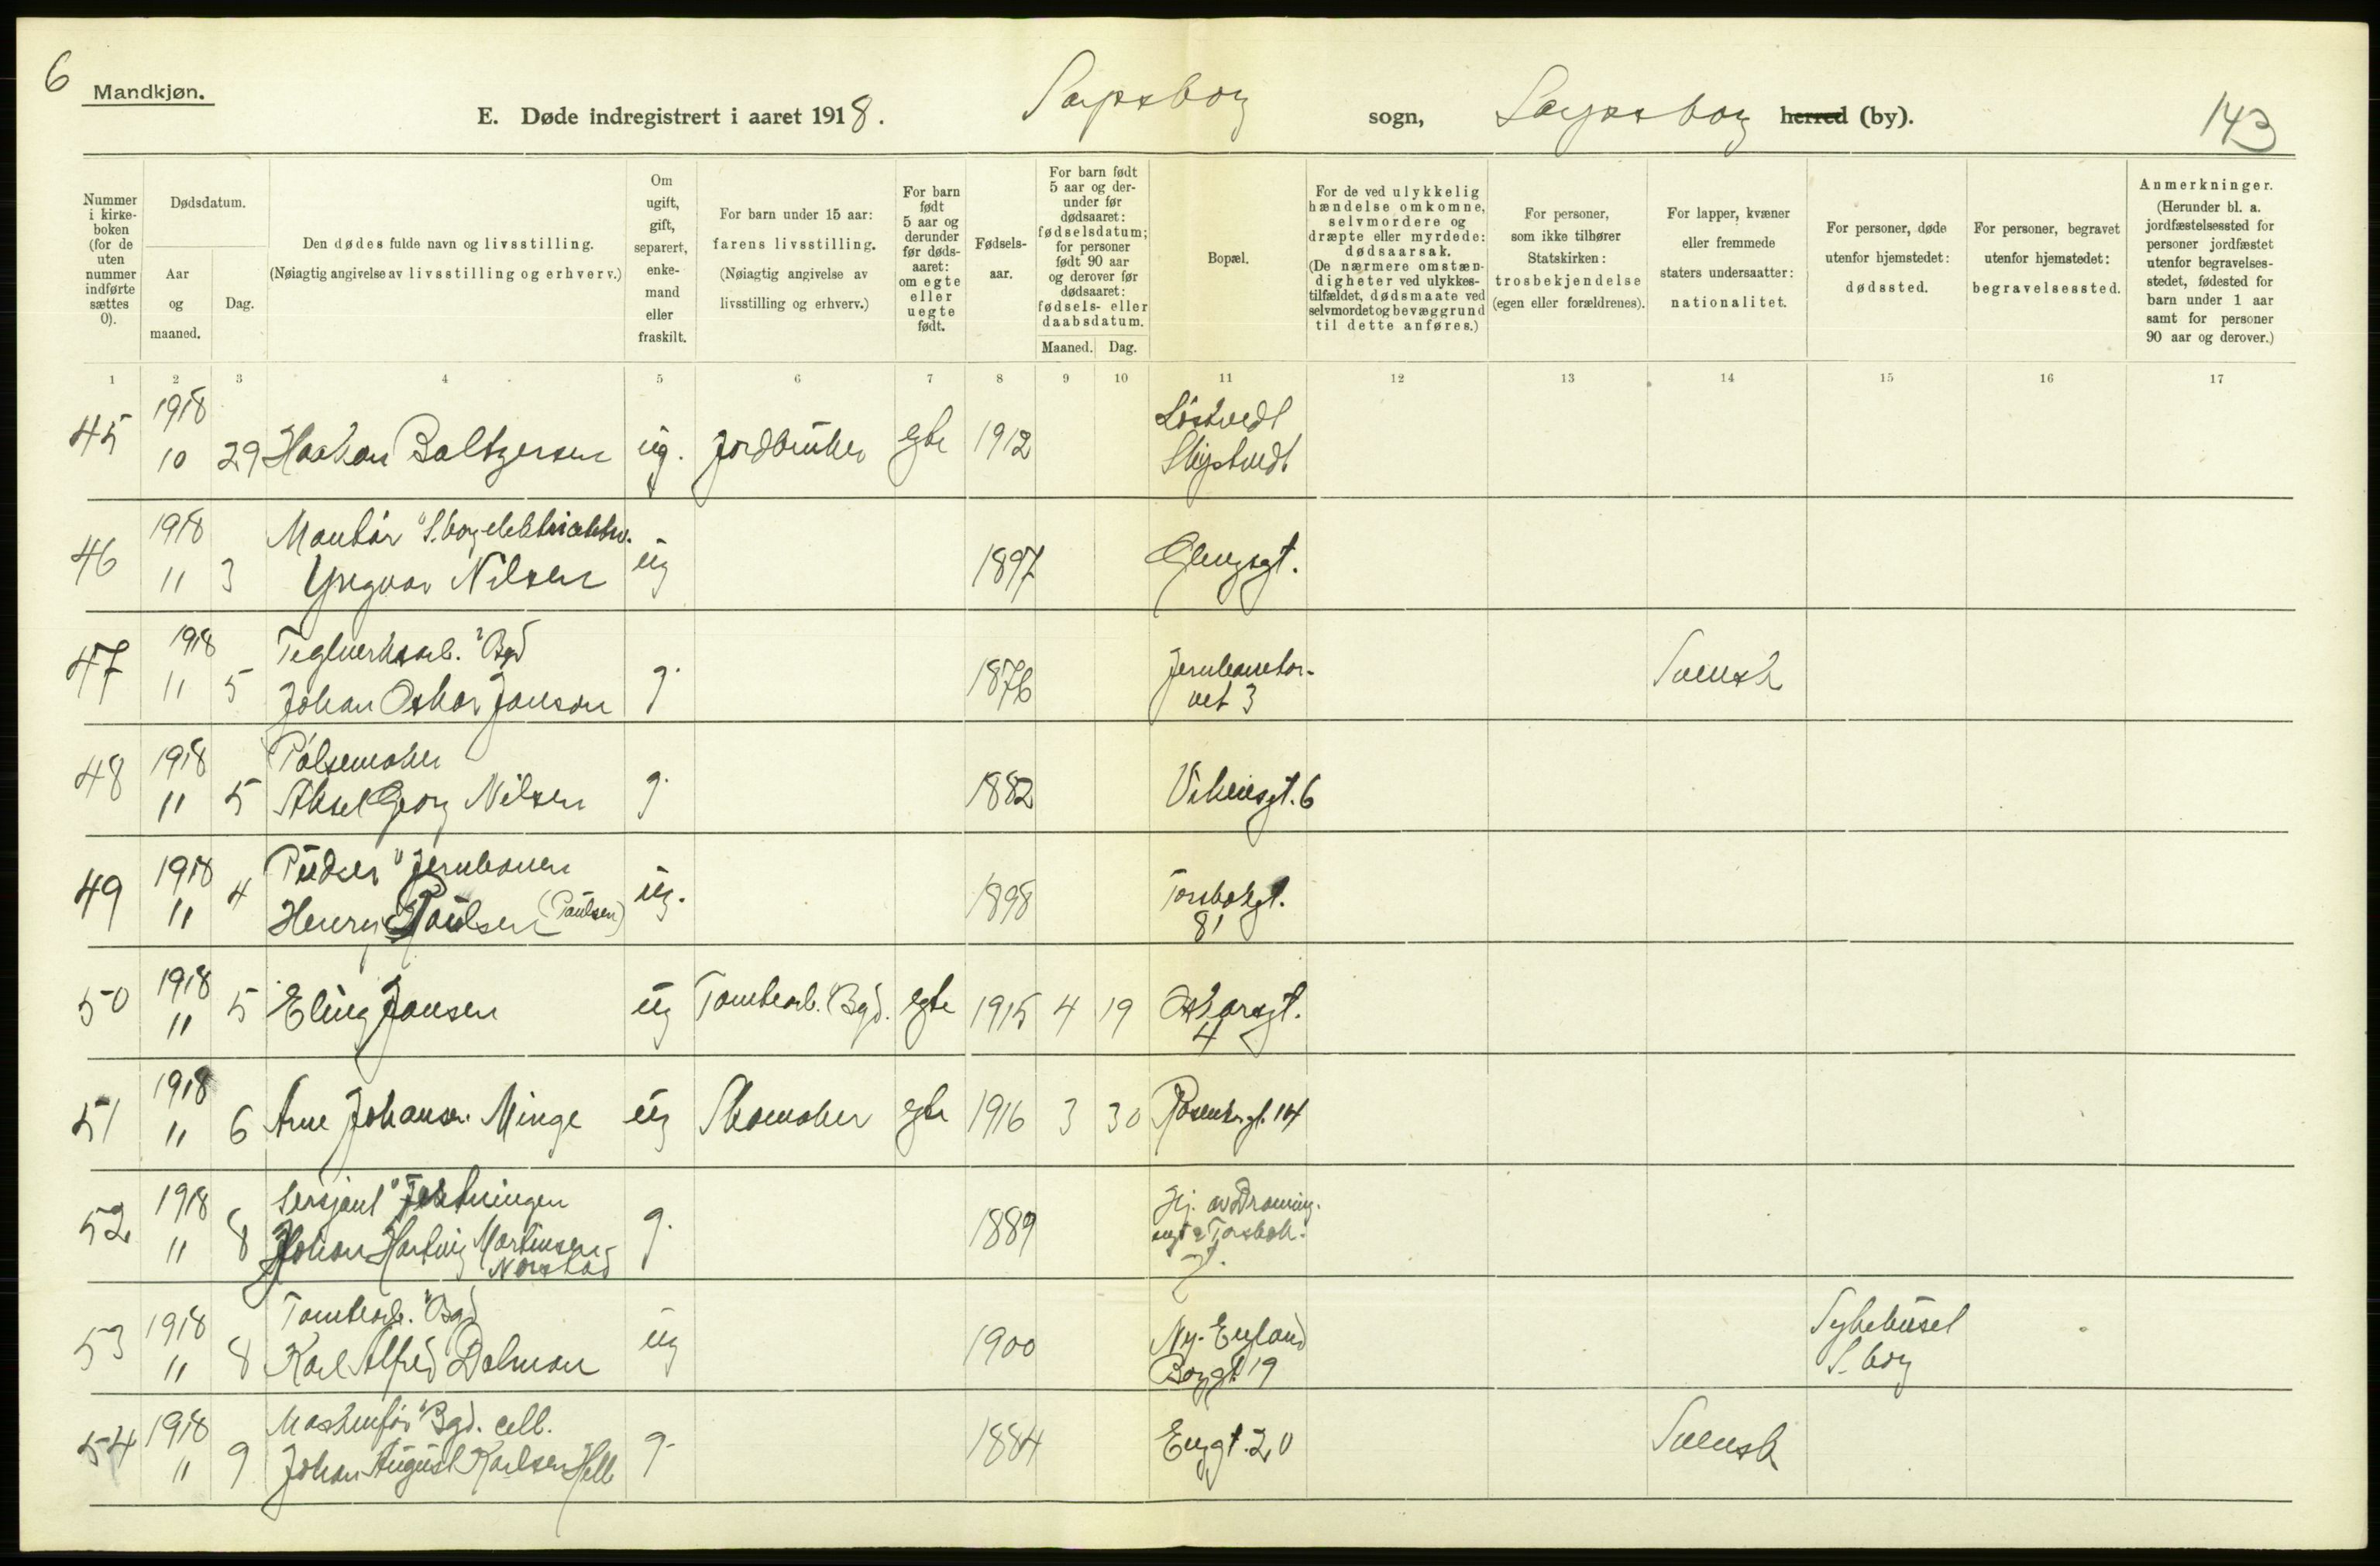 6
Mandkjøn.
E. Døde indregistrert i aaret 1918. Sarpsborg sogn, Sarpsborg herred (by).
143
Nummer i kirkeboken (for de uten nummer indførte sættes 0).
Dødsdatum.
Aar og maaned.
Dag.
Den dødes fulde navn og livsstilling.
(Nøiagtig angivelse av livsstilling og erhverv.)
Om ugift, gift, separert, enkemand eller fraskilt.
For barn under 15 aar:
farens livsstilling.
(Nøiagtig angivelse av livsstilling og erhverv.)
For barn født 5 aar og derunder før dødsaaret: om egte eller uegte født.
Fødselsaar.
For barn født 5 aar og derunder før dødsaaret: fødselsdatum; for personer født 90 aar og derover før dødsaaret: fødsels- eller daabsdatum.
Maaned. Dag.
Bopæl.
For de ved ulykkelig hændelse omkomne, selvmordere og dræpte eller myrdede: dødsaarsak.
(De nærmere omstændigheter ved ulykkestilfældet, dødsmaate ved selvmordet og bevæggrund til dette anføres.)
For personer, som ikke tilhører Statskirken:
trosbekjendelse
(egen eller forældrenes).
For lapper, kvæner eller fremmede staters undersaatter:
nationalitet.
For personer, døde utenfor hjemstedet:
dødssted.
For personer, begravet utenfor hjemstedet:
begravelsessted.
Anmerkninger.
(Herunder bl. a. jordfæstelsessted for personer jordfæstet utenfor begravelsesstedet, fødested for barn under 1 aar samt for personer 90 aar og derover.)
1 2 3 4 5 6 7 8 9 10 11 12 13 14 15 16 17
45 1918 10 29 Haakon Baltzersen ug. Jordbruker egte 1912
46 1918 11 3 Montør S.borg
Yngvar Nilsen ug 1897 Glengsgt.
47 1918 11 5 Teglverksarb. Bgd
Johan Oskar Janson g. 1876 Jernbanetor-
vet 3 Svensk
48 1918 11 5 Pølsemaker
Aksel Georg Nilsen g. 1882 6
49 1918 11 4 Pudser Jernbanen
Henry Paulsen (Paulsen) ug. 1898 Torsbekgt.
81
50 1918 11 5 Eling Jansen ug Tomtearb. Bgd. egte 1915 4 19 Oskarsgt.
4
51 1918 11 6 Arne Johansen Minge ug Skomaker egte 1916 3 30 14
52 1918 11 8 Sersjant Festningen
Johan Hartvig Martinsen
Norstad g. 1889 Hj. av Dronning.
Torsbek.
gt.
53 1918 11 8 Tomtearb. Bgd
Karl Alfred Dalman ug 1900 Ny-England
Borggt 19 Sykehuset
S.borg
54 1918 11 9 Maskinfør Bgd. cell.
Johan August Karlsen g. 1884 Enggt. 20 Svensk